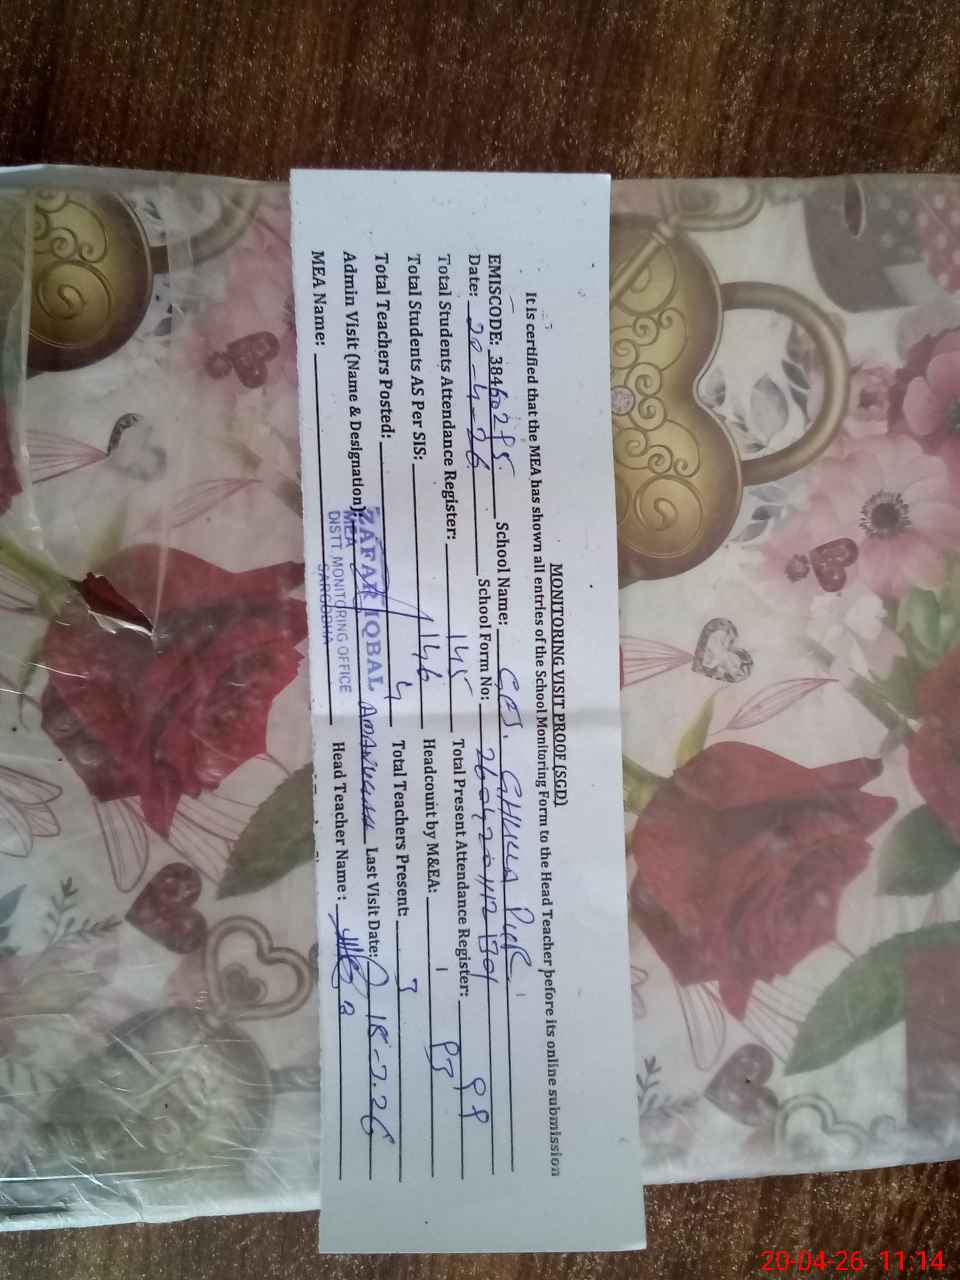 MONITORING VISIT PROOF (SGD)
It is certified that the MEA has shown all entries of the School Monitoring Form to the Head Teacher before its online submission
EMISCODE: School Name: GPS.
Date: 20-4-26 School Form No:
Total Students Attendance Register: 145 Total Present Attendance Register:
Total Students AS Per SIS: 146 Headcount by M&EA:
Total Teachers Posted: 4 Total Teachers Present: 3
Admin Visit (Name & Designation): Last Visit Date:
MEA Name: Head Teacher Name:
ZAFAR IQBAL
MEA
DISTT. MONITORING OFFICE
SARGODHA
20-04-26 11:14